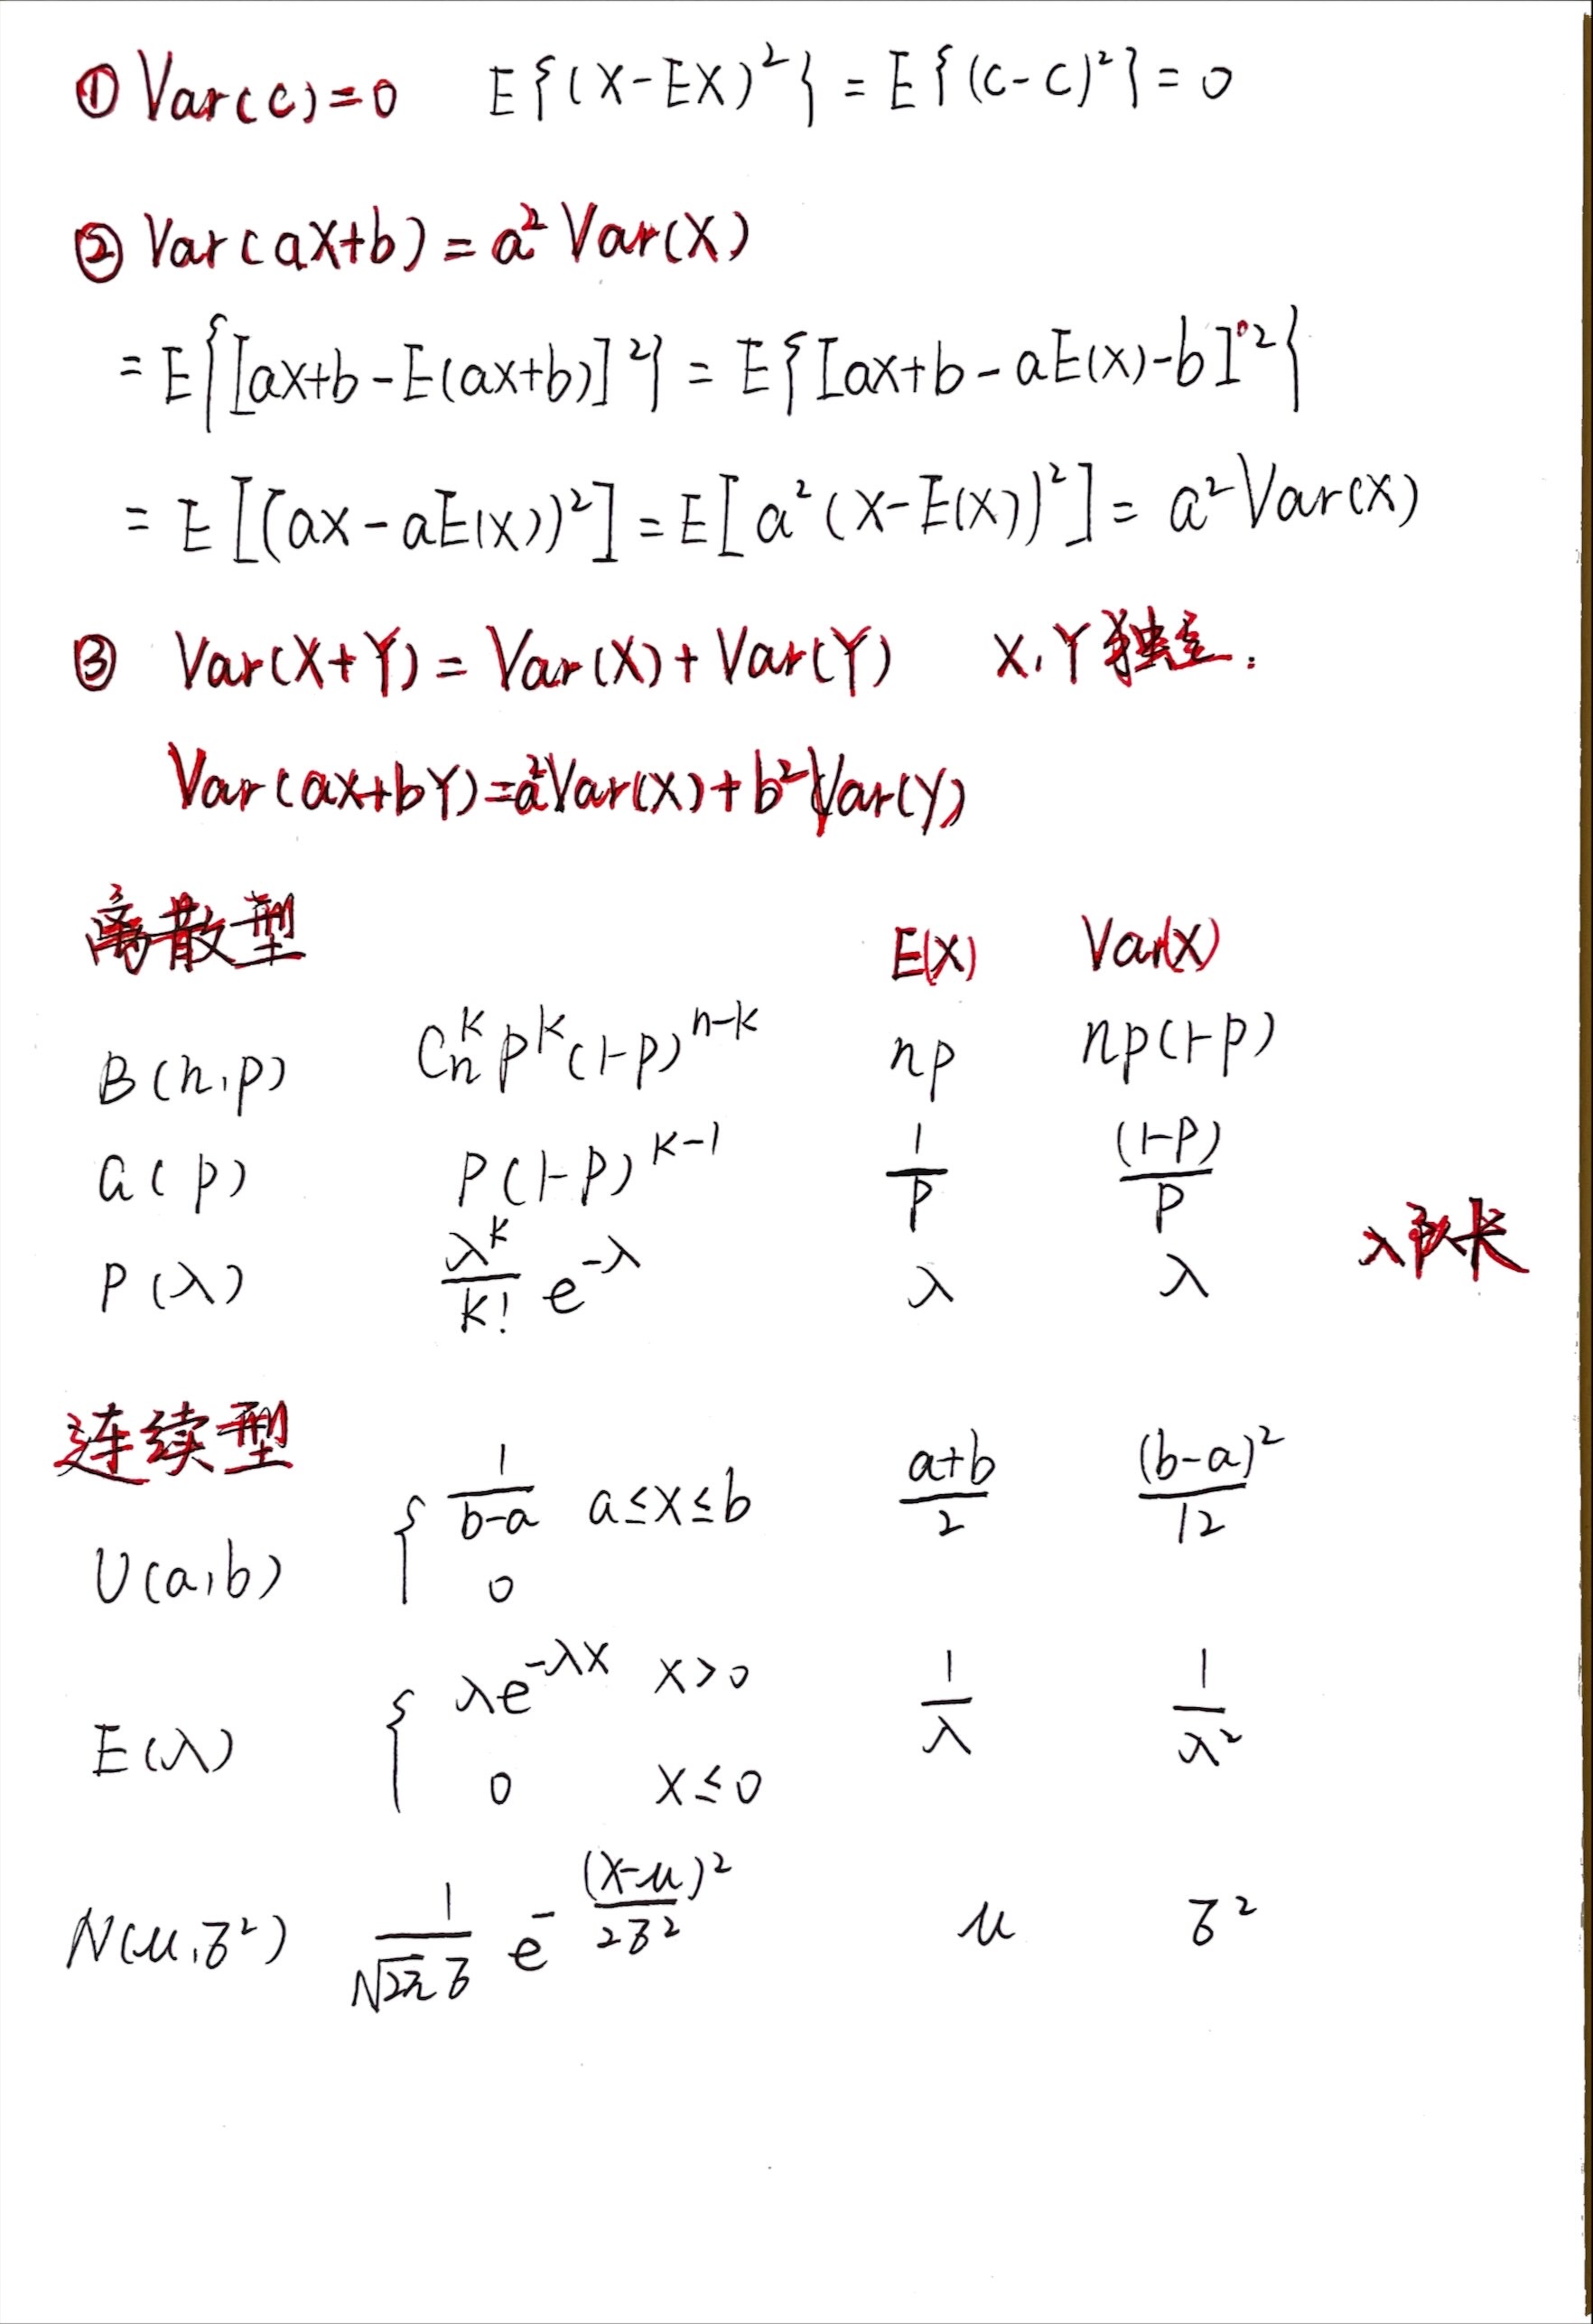 ① Var(c)=0 E{(X-EX)²} = E{(c-c)²} = 0
② Var(aX+b) = a² Var(X)
= E{[ax+b-E(ax+b)]²} = E{[ax+b-aE(x)-b]²}
= E[(ax-aE(x))²] = E[a²(x-E(x))²] = a² Var(x)
③ Var(X+Y) = Var(X) + Var(Y) X,Y独立.
Var(ax+bY)=a²Var(x)+b²Var(Y)
离散型 E(X) Var(X)
B(n,p) Cₙᵏ pᵏ(1-p)ⁿ⁻ᵏ np np(1-p)
G(p) P(1-P)ᴷ⁻¹ 1/P (1-P)/P
P(λ) λᴷ/K! e^{-λ} λ λ
入队长
连续型
U(a,b) { 1/(b-a) a≤x≤b (a+b)/2 (b-a)²/12
0
E(λ) { λe^{-λx} x>0 1/λ 1/λ²
0 x≤0
N(μ,σ²) 1/(√2π σ) e^{-(x-μ)²/2σ²} μ σ²